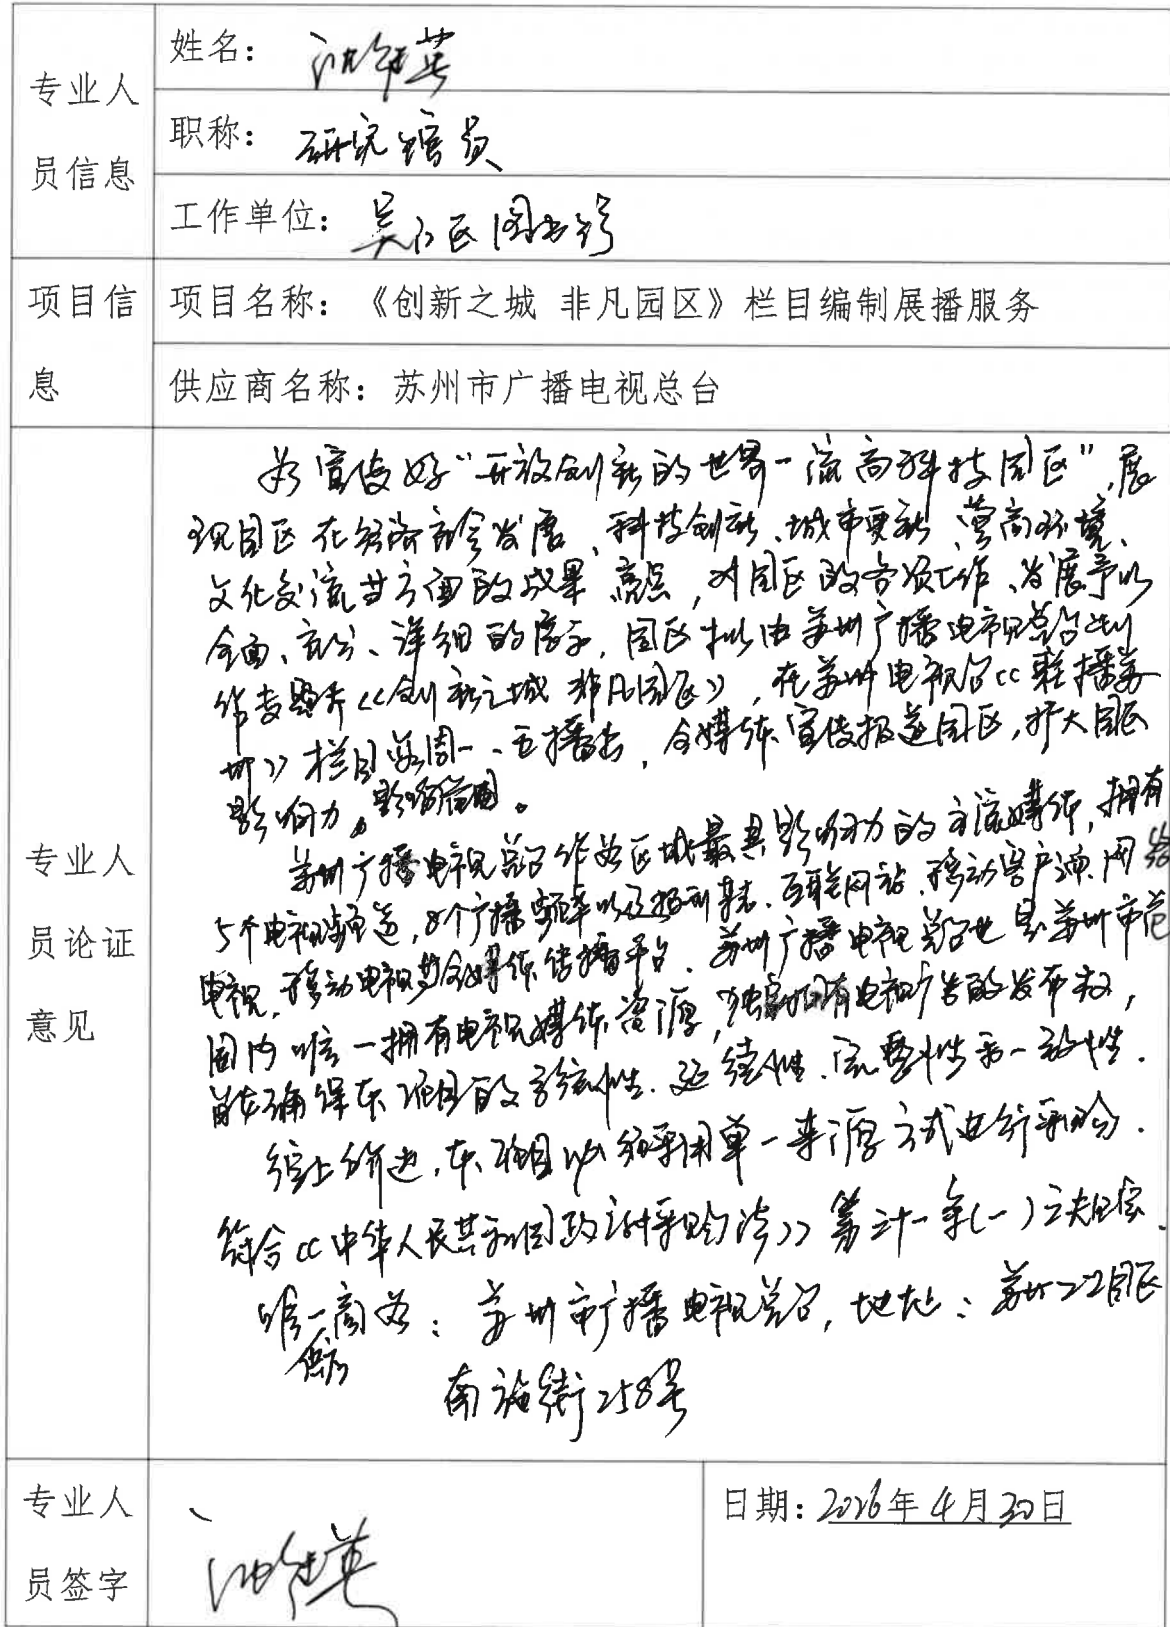 专业人员信息
姓名：沈健英
职称：研究馆员
工作单位：吴江区图书馆
项目信息
项目名称：《创新之城 非凡园区》栏目编制展播服务
供应商名称：苏州市广播电视总台
专业人员论证意见
为宣传好“开放创新的世界一流高科技园区”，展
现园区在经济社会发展、科技创新、城市更新、营商环境、
文化交流等方面的成果、亮点，对园区的各项工作、发展予以
全面、充分、详细的展示，园区拟由苏州广播电视总台制
作专题片《创新之城 非凡园区》，在苏州电视台《联播苏
州》栏目每周一、五播出，全媒体宣传报道园区，扩大园区
影响力，影响范围。
苏州广播电视总台作为区域最具影响力的主流媒体，拥有
5个电视频道，8个广播频率以及报刊杂志、互联网站、移动客户端、网络
电视、移动电视等全媒体传播平台。苏州广播电视总台也是苏州市范
围内唯一拥有电视媒体资源，独家拥有电视广告的发布权，
能确保本项目的系统性、延续性、完整性和一致性。
综上所述，本项目必须采用单一来源方式进行采购．
符合《中华人民共和国政府采购法》第三十一条(一)之规定．
唯一供应商为：苏州市广播电视总台，地址：苏州工业园区
南施街258号
专业人员签字
沈健英
日期：2026年4月30日